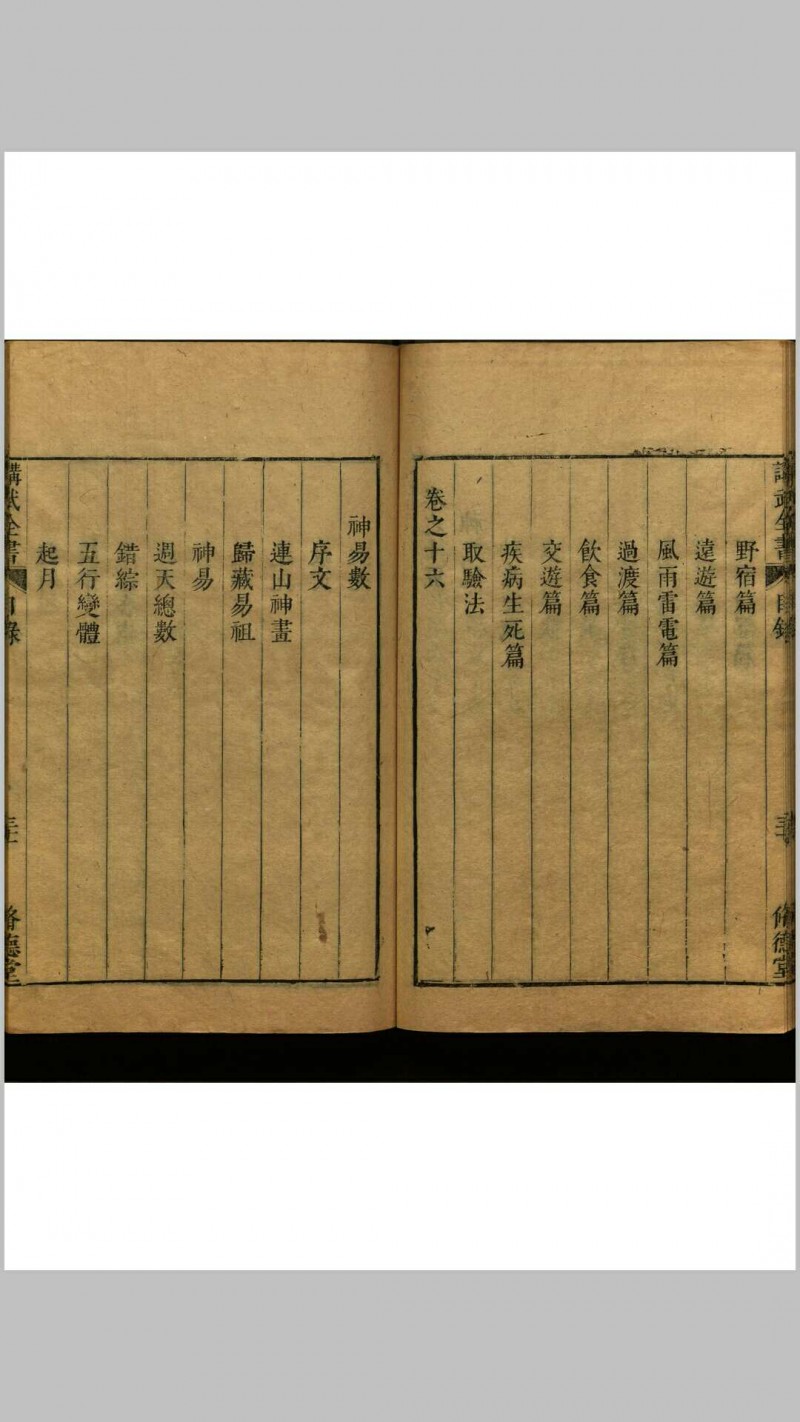 講武全書 目錄
脩德堂
野宿篇
遠遊篇
風雨雷電篇
過渡篇
飲食篇
交遊篇
疾病生死篇
取驗法
卷之十六
神易數
序文
連山神畫
歸藏易祖
神易
週天總數
錯綜
五行變體
起月
講武全書 目錄
脩德堂